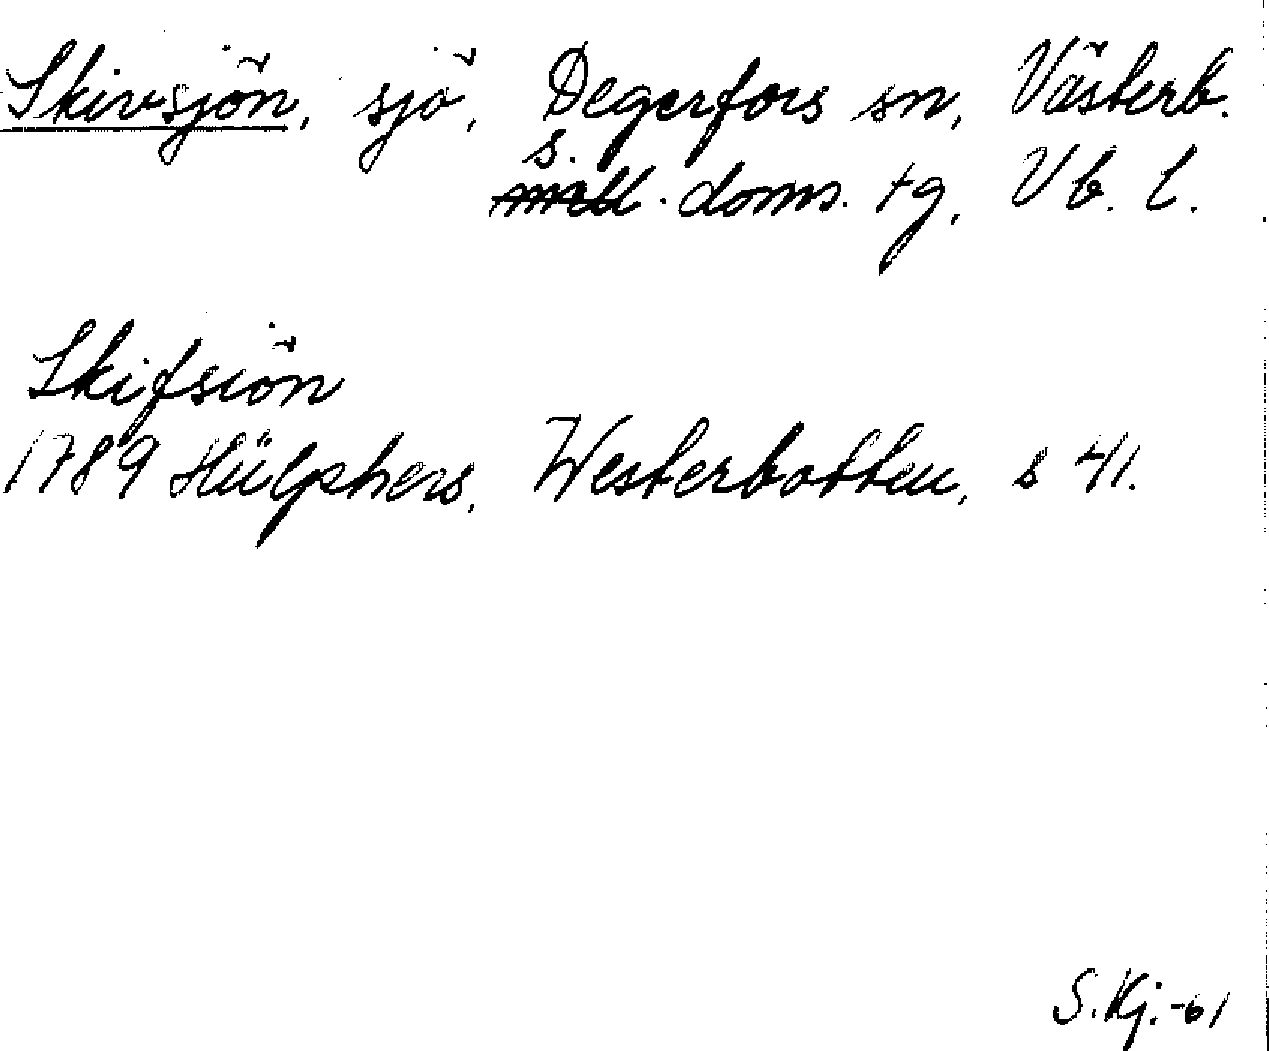 Skivsjön, sjö, Degerfors sn, Västerb.
s. doms. tg, Vb. l.
Skifsiön
1789 Hülphers, Westerbotten, s 41.
S.Kj.-61